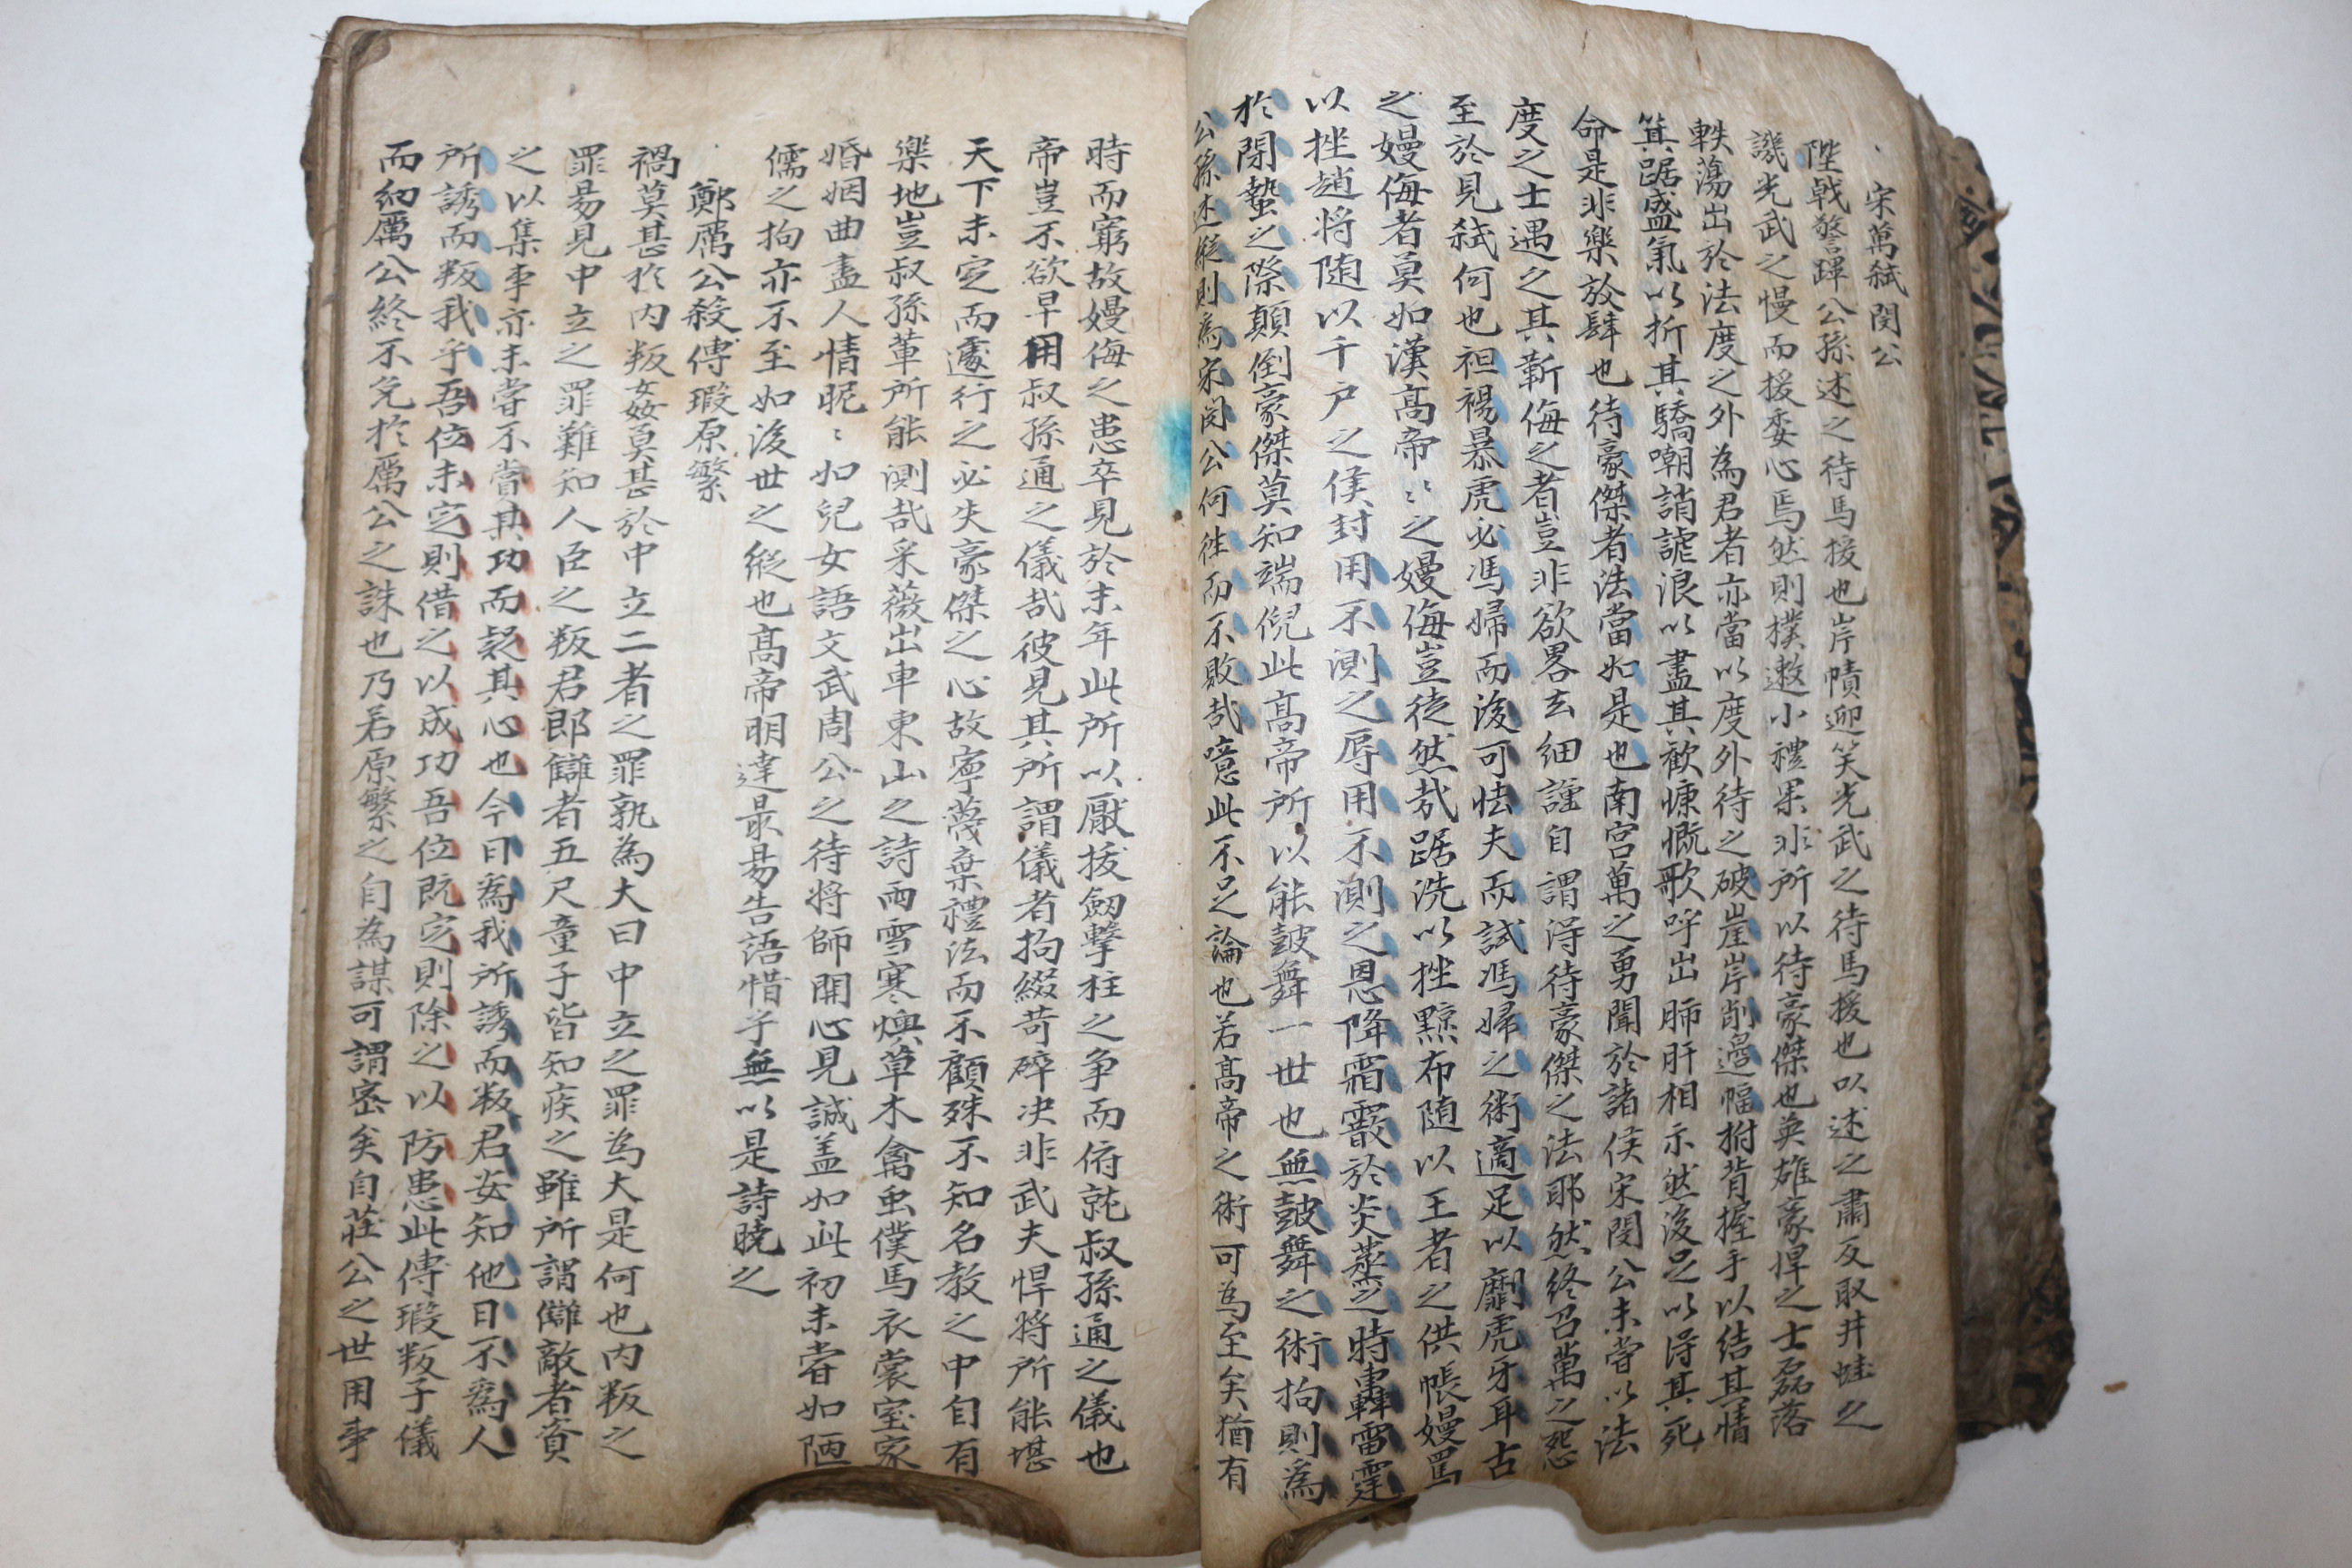 宋萬弑閔公
陛戟警蹕公孫述之待馬援也岸幘迎笑光武之待馬援也以述之肅反取井蛙之
譏光武之慢而援委心焉然則樸遬小禮果非所以待豪傑也英雄豪悍之士磊落
軼蕩出於法度之外為君者亦當以度外待之破崖岸削邊幅拊背握手以結其情
箕踞盛氣以折其驕嘲誚謔浪以盡其歡慷慨歌呼出肺肝相示然後足以得其死
命是非樂放肆也待豪傑者法當如是也南宮萬之勇聞於諸侯宋閔公未嘗以法
度之士遇之其靳侮之者豈非欲畧去細謹自謂得待豪傑之法耶然終召萬之怨
至於見弑何也袒裼暴虎必馮婦而後可怯夫而試馮婦之術適足以劘虎牙耳古
之嫚侮者莫如漢高帝〻之嫚侮豈徒然哉踞洗以挫黥布随以王者之供帳嫚罵
以挫趙将随以千户之侯封用不測之辱用不測之恩降霜霰於炎蒸之時轟雷霆
於閉蟄之際顛倒豪傑莫知端倪此高帝所以能鼓舞一世也無鼓舞之術拘則為
公孫述縱則為宋閔公何徃而不敗哉噫此不足論也若高帝之術可為至矣猶有
時而窮故嫚侮之患卒見於末年此所以厭拔劒擊柱之争而俯就叔孫通之儀也
帝豈不欲早用叔孫通之儀哉彼見其所謂儀者拘綴苛碎决非武夫悍将所能堪
天下未㝎而遽行之必失豪傑之心故寧蔑棄禮法而不顧殊不知名教之中自有
樂地豈叔孫軰所能測哉采薇出車東山之詩雨雪寒燠草木禽虫僕馬衣裳室家
婚姻曲盡人情昵〻如兒女語文武周公之待将師開心見誠盖如此初未甞如陋
儒之拘亦不至如後世之縱也高帝明達最昜告語惜乎無以是詩曉之
鄭厲公殺傅瑕原繁
禍莫甚於内叛姦莫甚於中立二者之罪孰為大曰中立之罪為大是何也内叛之
罪昜見中立之罪難知人臣之叛君郎讎者五尺童子皆知疾之雖所謂讎敵者資
之以集事亦未甞不賞其功而疑其心也今日為我所誘而叛君安知他日不為人
所誘而叛我乎吾位未㝎則借之以成功吾位既㝎則除之以防患此傅瑕叛子儀
而納厲公終不免於厲公之誅也乃若原繁之自為謀可謂宻矣自莊公之世用事